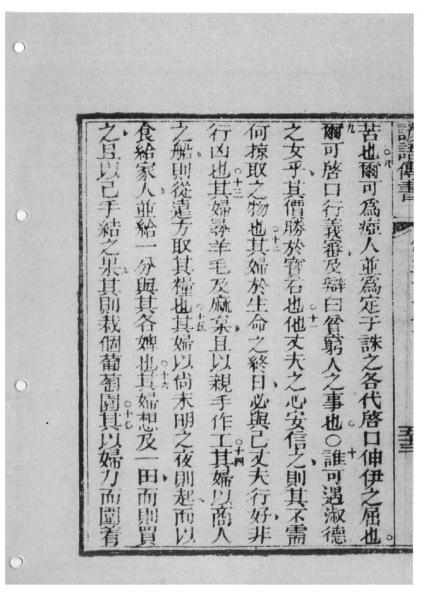 諺語傳書
五十三
苦也爾可爲瘂人並爲定于誅之各代啓口伸伊之屈也
九爾可啓口行義審及辯曰貧窮人之事也〇十誰可遇淑德
之女乎其價勝於寶石也十一他丈夫之心安信之則其不需
何掠取之物也十二其婦於生命之終日必與己丈夫行好非
行凶也十三其婦尋羊毛及麻枲且以親手作工十四其婦以商人
之船則從遠方取其糧也十五其婦以尙未明之夜則起而以
食給家人並給一分與其各婢也十六其婦想及一田而則買
之且以己手結之果其則栽個葡萄園十七其以婦力而圍着